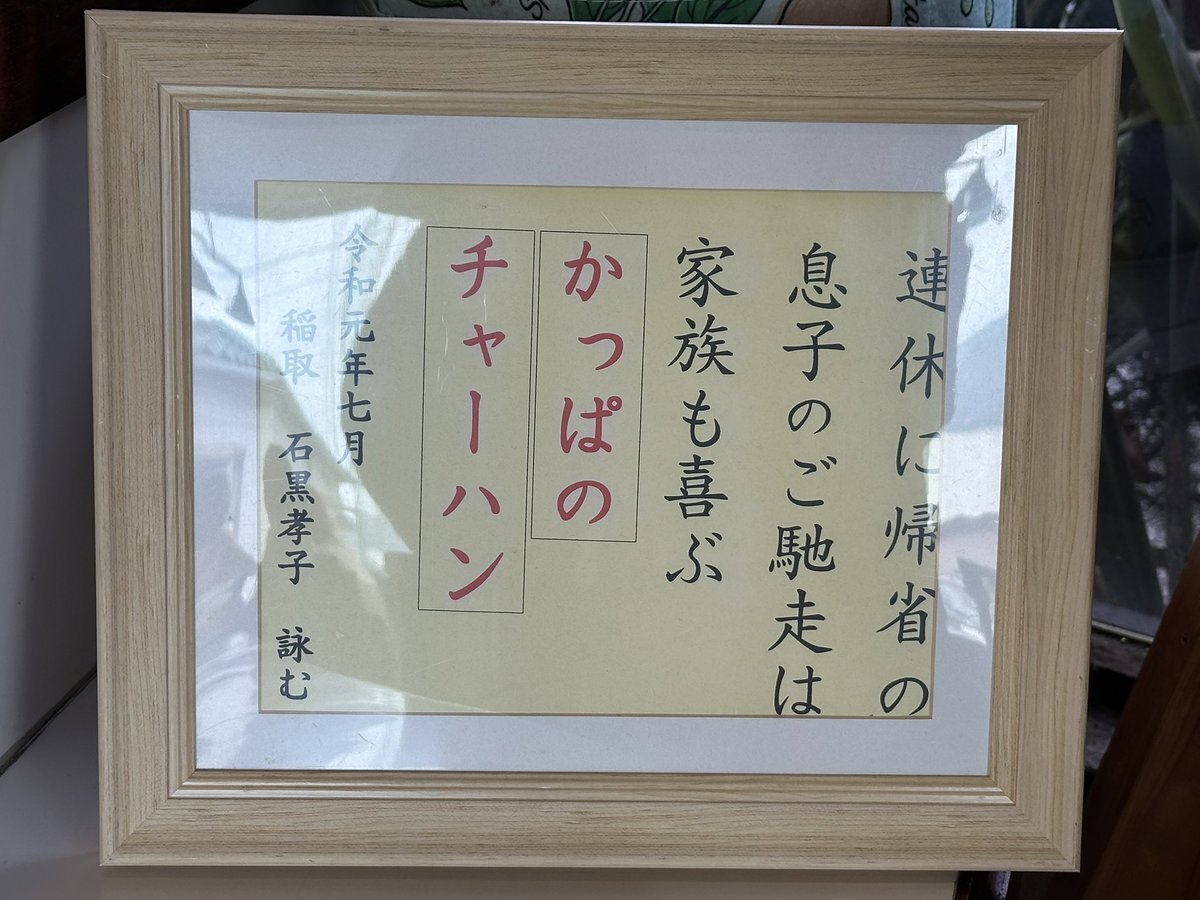 連休に帰省の
息子のご馳走は
家族も喜ぶ
かっぱの
チャーハン
令和元年七月
稲取 石黒孝子 詠む